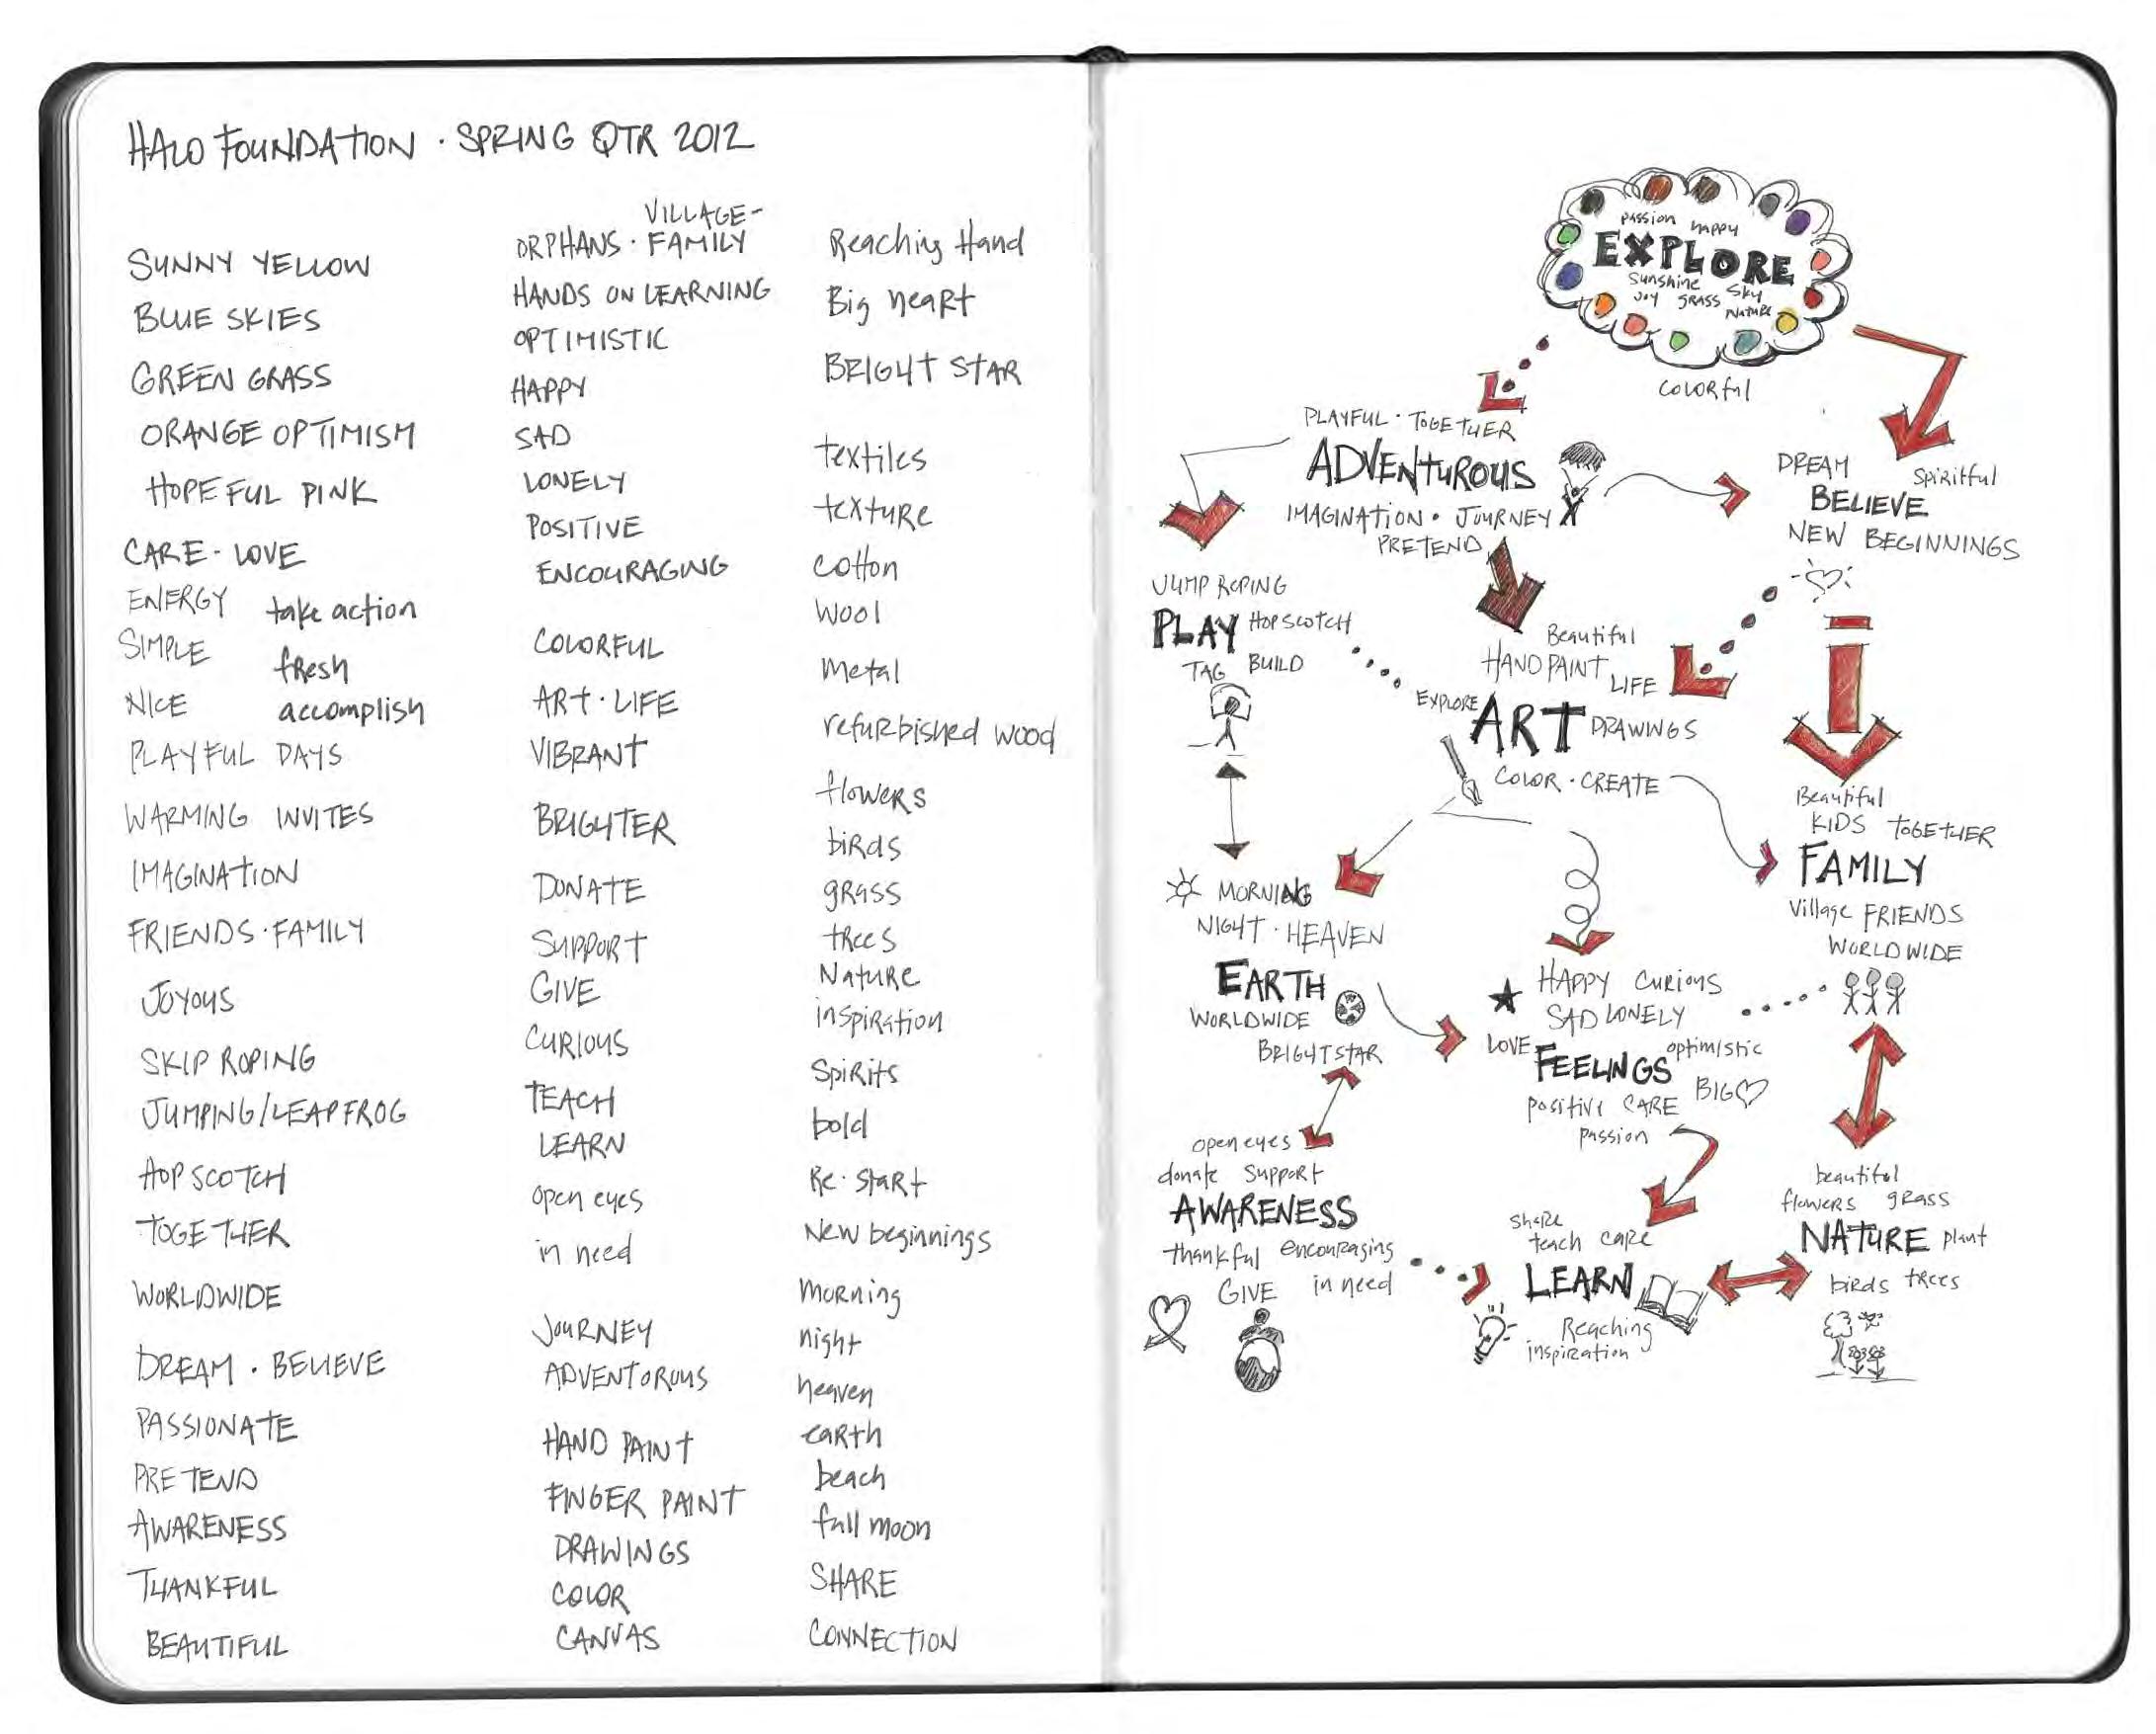 HALO FOUNDATION · SPRING QTR 2012
SUNNY YELLOW
BLUE SKIES
GREEN GRASS
ORANGE OPTIMISM
HOPEFUL PINK
CARE - LOVE
ENERGY take action
SIMPLE fresh
NICE accomplish
PLAYFUL DAYS
WARMING INVITES
IMAGINATION
FRIENDS · FAMILY
JOYOUS
SKIP ROPING
JUMPING/LEAPFROG
HOP SCOTCH
TOGETHER
WORLDWIDE
DREAM . BELIEVE
PASSIONATE
PRETEND
AWARENESS
THANKFUL
BEAUTIFUL
VILLAGE-
ORPHANS · FAMILY
HANDS ON LEARNING
OPTIMISTIC
HAPPY
SAD
LONELY
POSITIVE
ENCOURAGING
COLORFUL
ART · LIFE
VIBRANT
BRIGHTER
DONATE
SUPPORT
GIVE
CURIOUS
TEACH
LEARN
open eyes
in need
JOURNEY
ADVENTOROUS
HAND PAINT
FINGER PAINT
DRAWINGS
COLOR
CANVAS
Reaching Hand
Big heart
BRIGHT STAR
textiles
texture
cotton
wool
metal
refurbished wood
flowers
birds
grass
trees
Nature
inspiration
Spirits
bold
Re·start
New beginnings
morning
night
heaven
earth
beach
full moon
SHARE
CONNECTION
passion happy
EXPLORE
sunshine sky
joy grass Nature
COLORful
PLAYFUL · TOGETHER
ADVENTUROUS
IMAGINATION · JOURNEY
PRETEND
DREAM Spiritful
BELIEVE
NEW BEGINNINGS
JUMP ROPING
PLAY HOPSCOTCH
TAG BUILD
Beautiful
HAND PAINT LIFE
EXPLORE ART DRAWINGS
COLOR · CREATE
Beautiful
KIDS TOGETHER
FAMILY
Village FRIENDS
WORLDWIDE
MORNING
NIGHT · HEAVEN
EARTH
WORLDWIDE
BRIGHT STAR
HAPPY CURIOUS
SAD LONELY
LOVE FEELINGS optimistic
positive CARE BIG
passion
open eyes
donate support
AWARENESS
thankful encouraging
GIVE in need
share
teach care
LEARN
Reaching
inspiration
beautiful
flowers grass
NATURE plant
birds trees